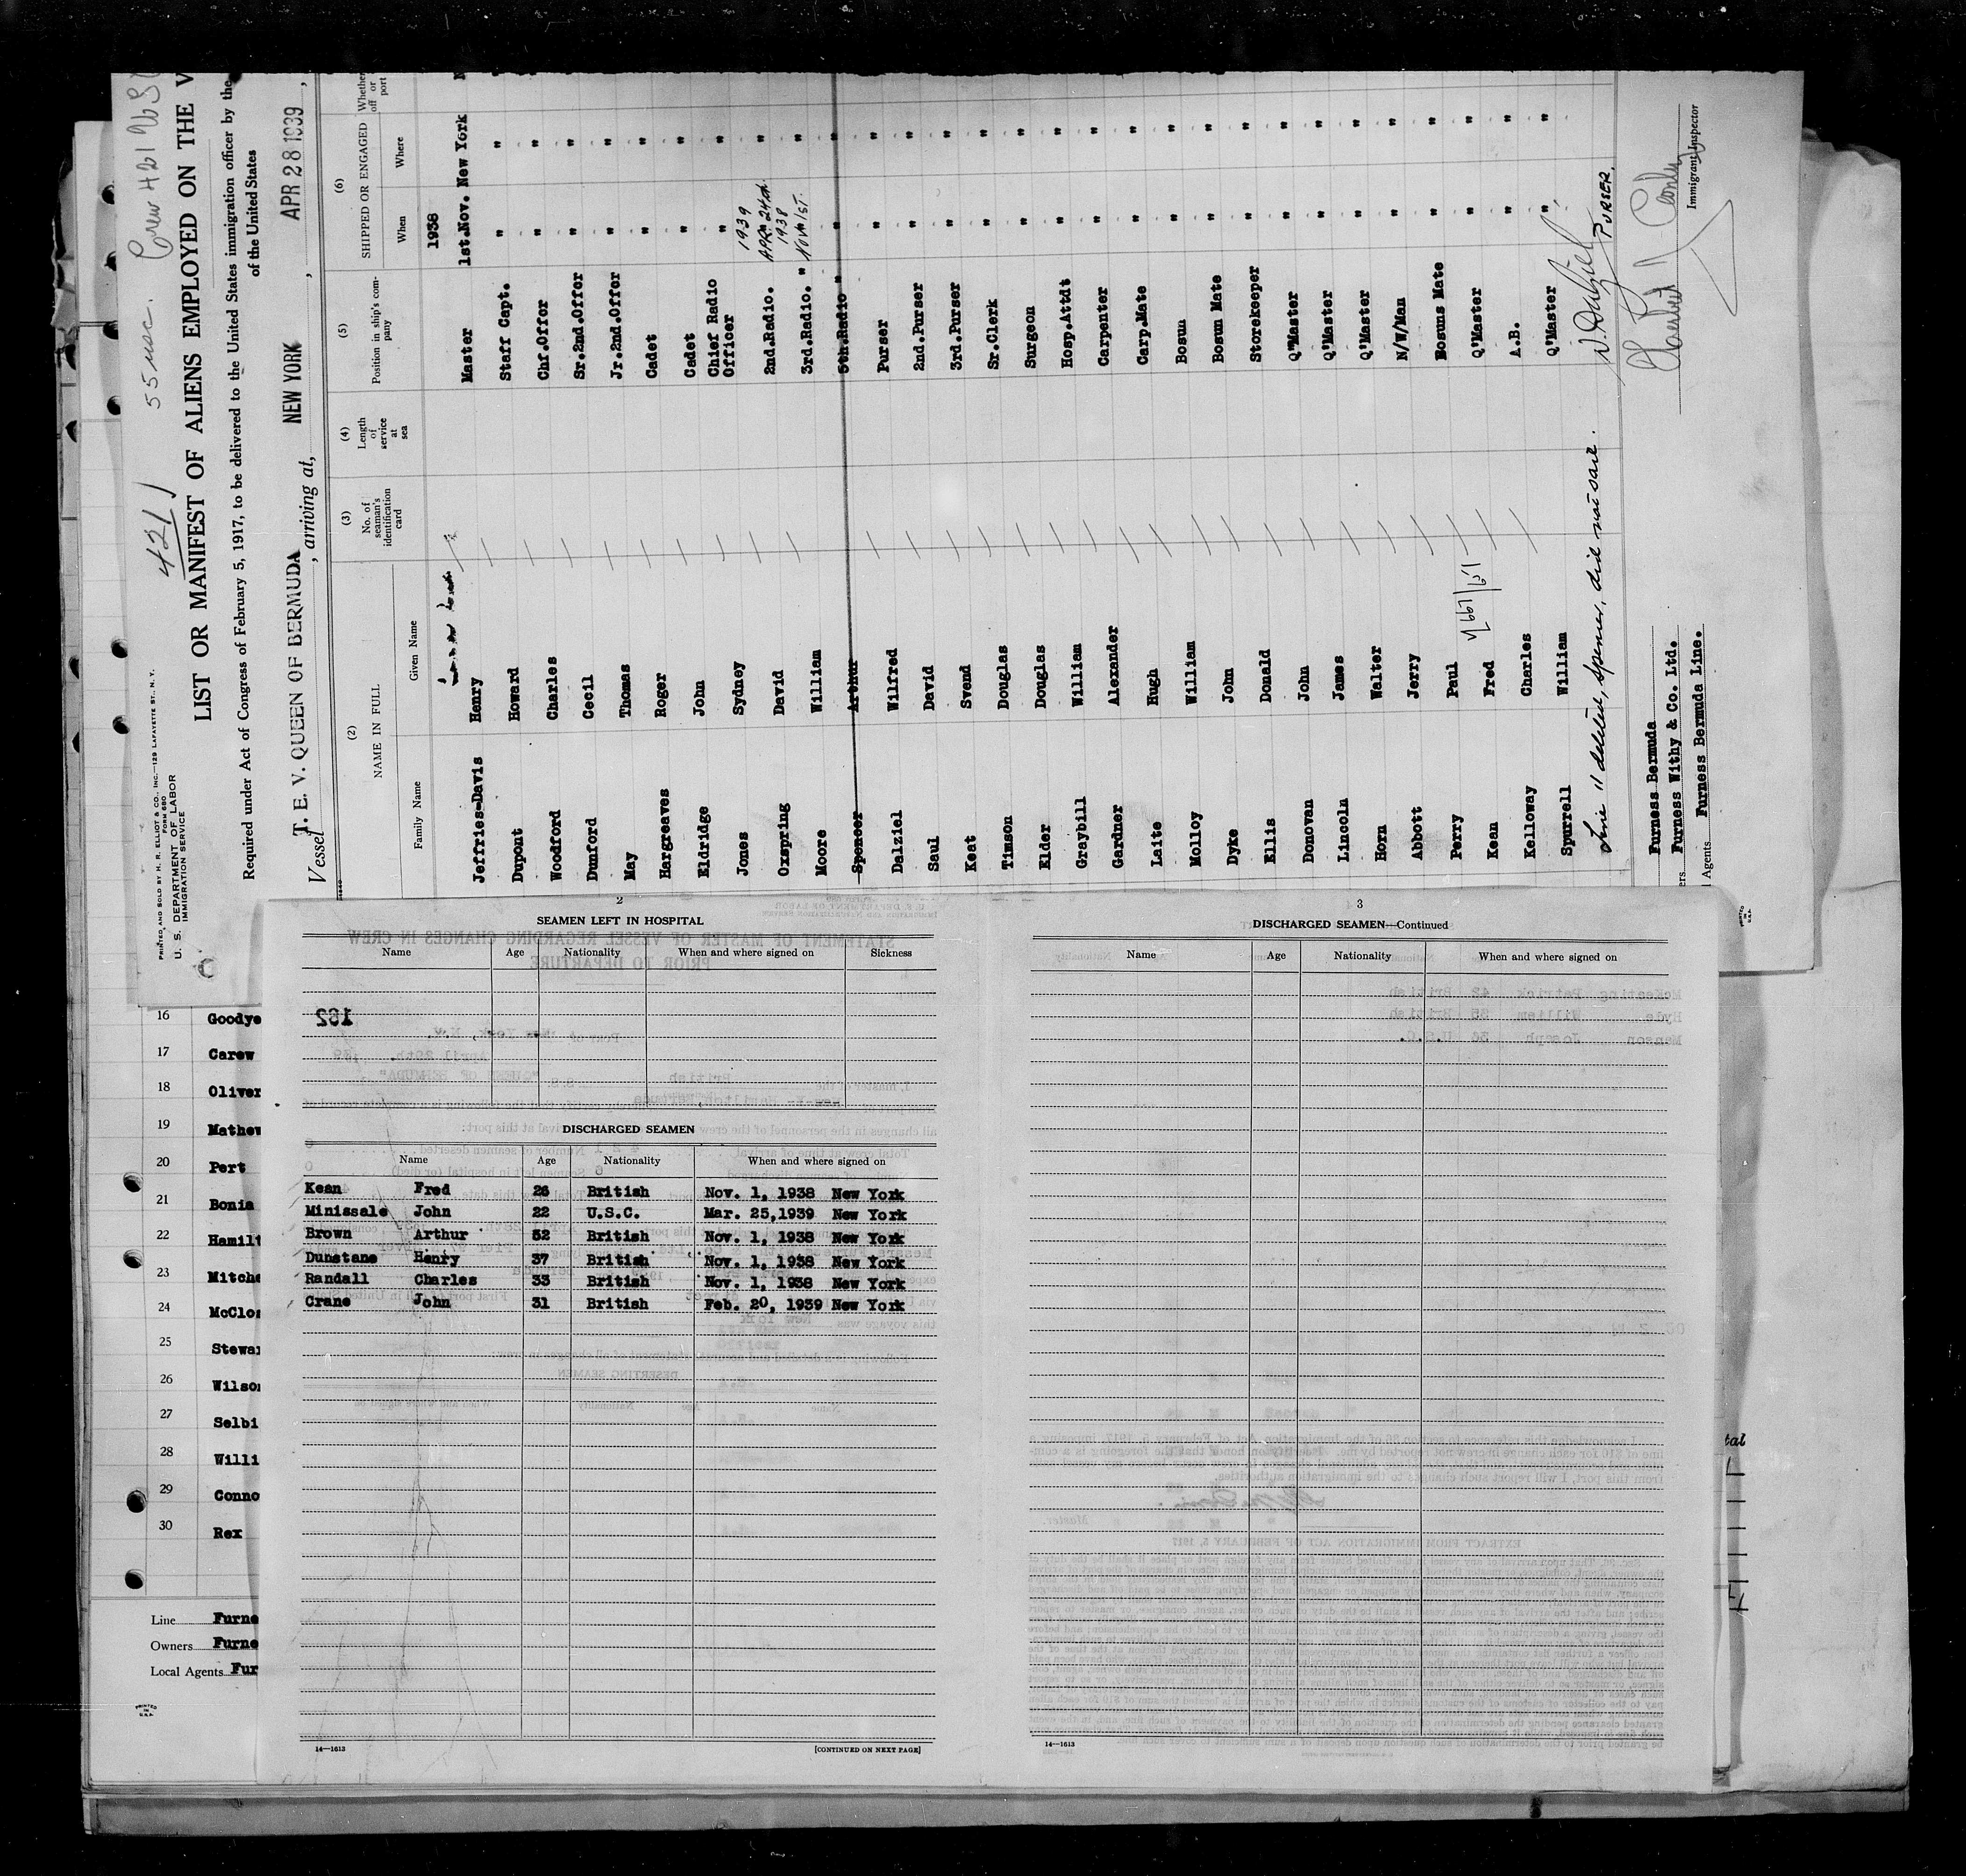 55 usc. Crew 421
421
PRINTED AND SOLD BY H. R. ELLIOT & CO., INC.—129 LAFAYETTE ST., N. Y.
FORM 680
U. S. DEPARTMENT OF LABOR
IMMIGRATION SERVICE
LIST OR MANIFEST OF ALIENS EMPLOYED ON THE V
Required under Act of Congress of February 5, 1917, to be delivered to the United States immigration officer by the
of the United States
Vessel T. E. V. QUEEN OF BERMUDA, arriving at, NEW YORK, APR 28 1939,
(2) (3) (4) (5) (6)
NAME IN FULL No. of seaman's identification card Length of service at sea Position in ship's company SHIPPED OR ENGAGED Whether off or port
Family Name Given Name When Where
1938
Jeffries-Davis Henry Master 1st.Nov. New York
Dupont Howard Staff Capt. " "
Woodford Charles Chf.Offer " "
Dunford Cecil Sr.2nd.Offer " "
May Thomas Jr.2nd.Offer " "
Hargreaves Roger Cadet " "
Eldridge John Cadet " "
Jones Sydney Chief Radio Officer " "
Oxspring David 2nd.Radio. 1939 APR. 24th "
Moore William 3rd.Radio. " 1938 Nov 1st. "
Spencer Arthur 5th.Radio " " "
Dalziel Wilfred Purser " "
Saul David 2nd.Purser " "
Keat Svend 3rd.Purser " "
Timson Douglas Sr.Clerk " "
Elder Douglas Surgeon " "
Graybill William Hosp.Attdt " "
Gardner Alexander Carpenter " "
Laite Hugh Carp.Mate " "
Molloy William Bosun " "
Dyke John Bosun Mate " "
Ellis Donald Storekeeper " "
Donovan John Q'Master " "
Lincoln James Q'Master " "
Horn Walter Q'Master " "
Abbott Jerry N/W/Man " "
Perry Paul Bosuns Mate " "
Kean Fred Q'Master " "
Kelloway Charles A.B. " "
Spurrell William Q'Master " "
Line 11 deleted, Spencer, did not sail.
W. Dalziel PURSER.
Furness Bermuda
Furness Withy & Co. Ltd.
Agents Furness Bermuda Line.
Immigrant Inspector
16 Goodye
17 Carew
18 Oliver
19 Mathew
20 Pert
21 Bonia
22 Hamilt
23 Mitche
24 McClos
25 Stewar
26 Wilson
27 Selbi
28 Willi
29 Conno
30 Rex
Line Furne
Owners Furne
Local Agents Fur
PRINTED IN U.S.A.
2
SEAMEN LEFT IN HOSPITAL
Name Age Nationality When and where signed on Sickness
182
DISCHARGED SEAMEN
Name Age Nationality When and where signed on
Kean Fred 26 British Nov. 1, 1938 New York
Minissale John 22 U.S.C. Mar. 25,1939 New York
Brown Arthur 52 British Nov. 1, 1938 New York
Dunstane Henry 37 British Nov. 1, 1938 New York
Randall Charles 33 British Nov. 1, 1938 New York
Crane John 31 British Feb. 20, 1939 New York
14—1613 [CONTINUED ON NEXT PAGE]
3
DISCHARGED SEAMEN—Continued
Name Age Nationality When and where signed on
14—1613